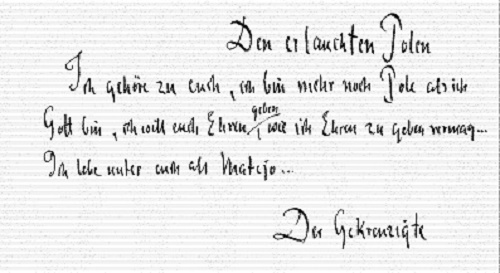 Den erlauchten Polen
Ich gehöre zu euch, ich bin mehr noch Pole als ich
Gott bin, ich will euch Ehren geben, wie ich Ehren zu geben vermag...
Ich lebe unter euch als Matejo...
Der Gekreuzigte